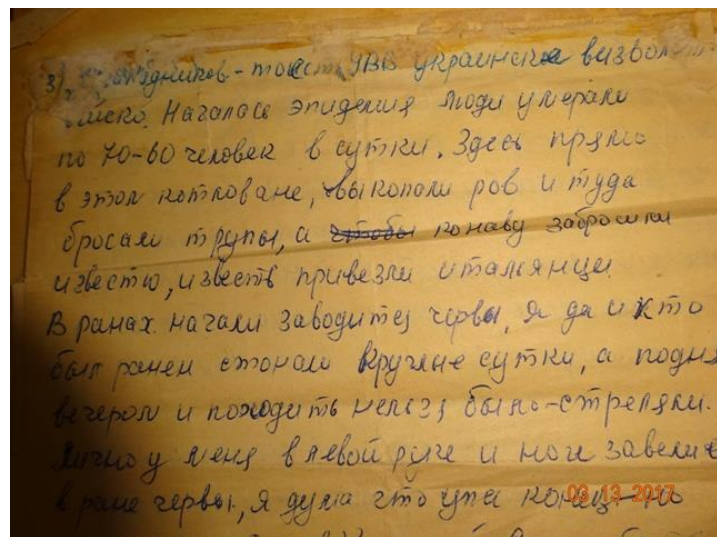 3) тоесть УВВ украинске визвол
Началась эпидемия люди умерали
по 70-60 человек в сутки. Здесь прямо
в этом котловане, выкопали ров и туда
бросали трупы, а чтобы конаву забросили
известю, известь привезли итальянци.
В ранах начали заводитця червы, я да и кто
был ранен стонали круглые сутки, а подня
вечером и походить нельзя было-стреляли.
Лично у меня в левой руке и ноге завелис
в ране червы, я дума что уже конец-но
03 13 2017